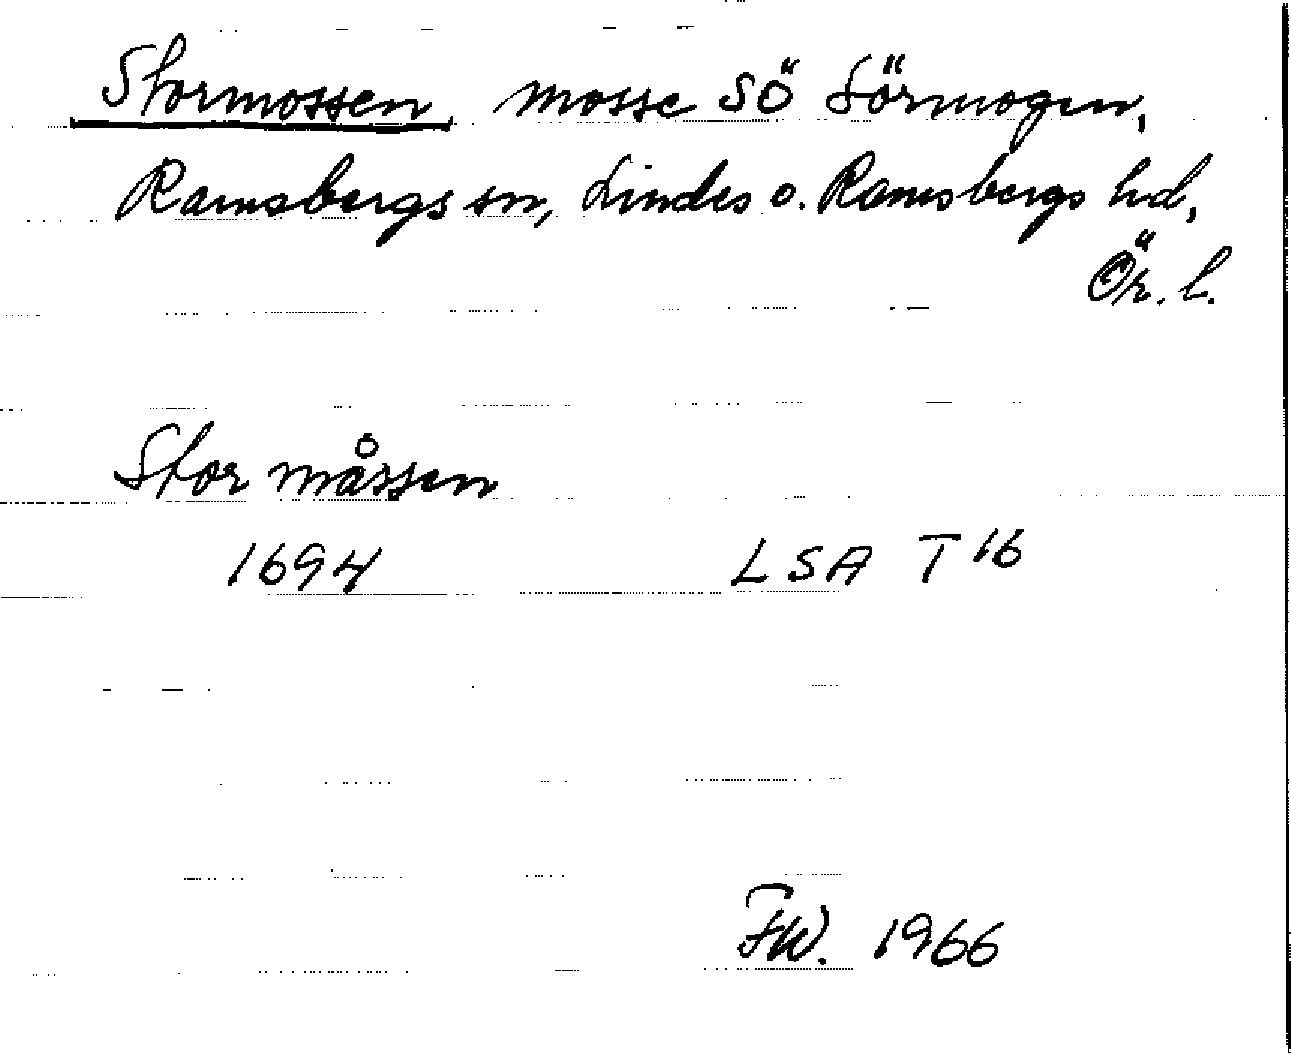 Stormossen, mosse SÖ Sörmogen,
Ramsbergs sn, Lindes o. Ramsbergs hd,
Ör. l.
Stor måssen
1694 LSA T 16
FW. 1966